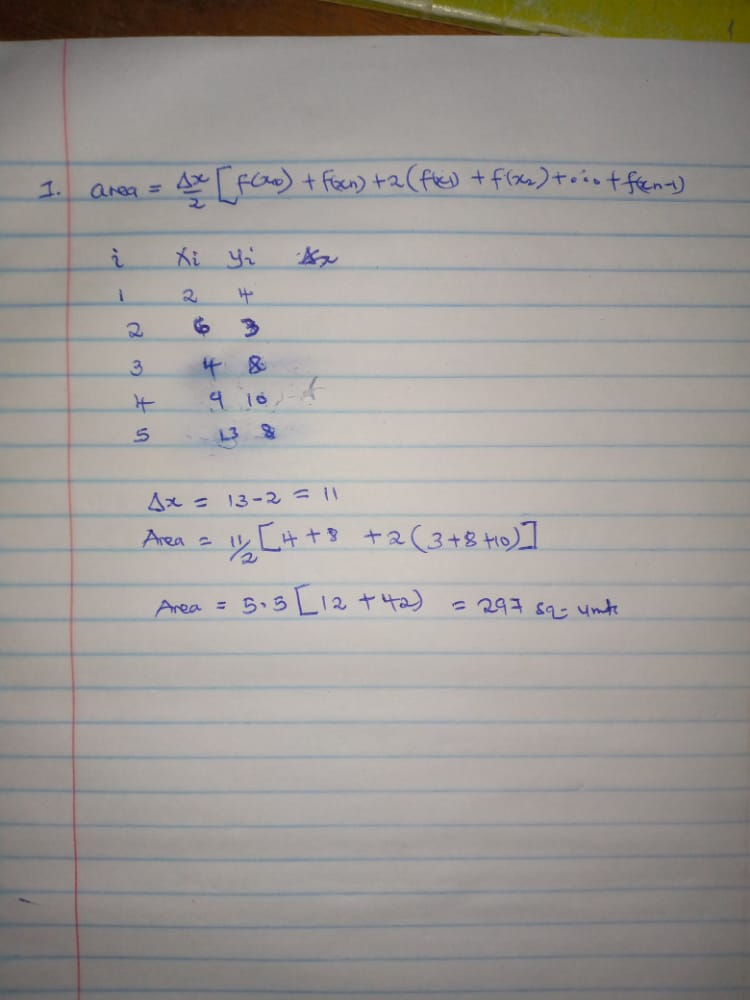 1. area = Δx/2 [f(x0) + f(xn) + 2(f(x1) + f(x2) + ... + f(xn-1)
i xi yi Δx
1 2 4
2 6 3
3 4 8
4 9 10
5 13 8
Δx = 13-2 = 11
Area = 11/2 [4+8 +2(3+8+10)]
Area = 5.5 [12 + 42) = 297 sq- units